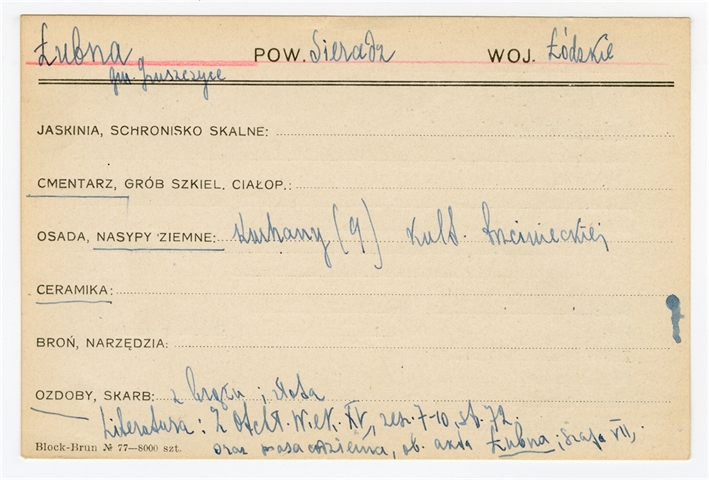 Łubna POW. Sieradz WOJ. Łódzkie
gm. Gruszczyce
JASKINIA, SCHRONISKO SKALNE:
CMENTARZ, GRÓB SZKIEL. CIAŁOP.:
OSADA, NASYPY ZIEMNE: Kurhany (9) kult. trzcinieckiej
CERAMIKA:
BROŃ, NARZĘDZIA:
OZDOBY, SKARB: z brązu i złota
Literatura: Z Otchł. Wiek. XV, zesz. 7-10, st. 72.
oraz prasa codzienna, ob. akta Łubna; szafa VII,.
Block-Brun № 77—8000 szt.